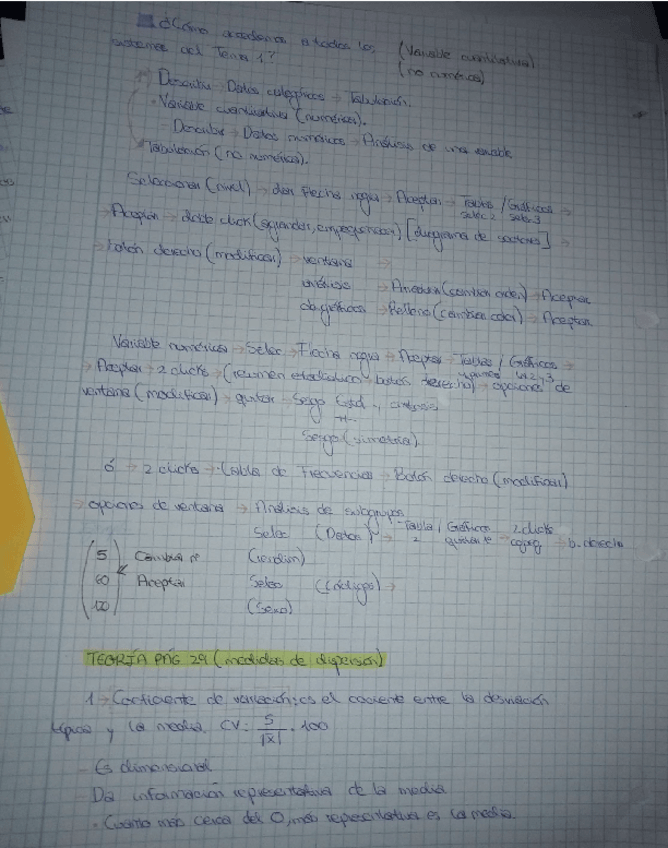 ¿Cómo accedemos a todos los (Variable cuantitativa)
sistemas del Tema 1? (no numérica)
Describir → Datos categóricos → Tabulación.
· Variable cuantitativa (numérica).
- Describir → Datos numéricos → Análisis de una variable
Tabulación (no numérica).
Seleccionar (nivel) → dar flecha negra → Aceptar → Tablas / Gráficos →
selec 2 selec 3
→ Aceptar → doble click (agrandar, empequeñecer) [diagrama de sectores] →
→ botón derecho (modificar) → ventana →
análisis → (cambian orden) → Aceptar
op. gráficas → Relleno (cambian color) → Aceptar
Variable numérica → Selec → Flecha negra → Aceptar → Tablas / Gráficos →
1,2,3
→ Aceptar → 2 clicks → (resumen estadístico → botón derecho) → opciones de
ventana (modificar) → quitar → Sesgo Estd.,
Sesgo (simetría).
ó → 2 clicks → tabla de frecuencias → Botón derecho (modificar)
→ opciones de ventana → Análisis de subgrupos
Selec (Datos) → Tablas, Gráficos 2 clicks → b. derecho
2
5 Cambiar nº Selec (Código) →
60 Aceptar (Sexo)
100
TEORÍA PÁG 29 (medidas de dispersión)
1 → Coeficiente de variación: es el cociente entre la desviación
típica y la media. CV = S/|x̄| · 100
- Es dimensional
- Da información representativa de la media
· Cuanto más cerca del 0, más representativa es la media.